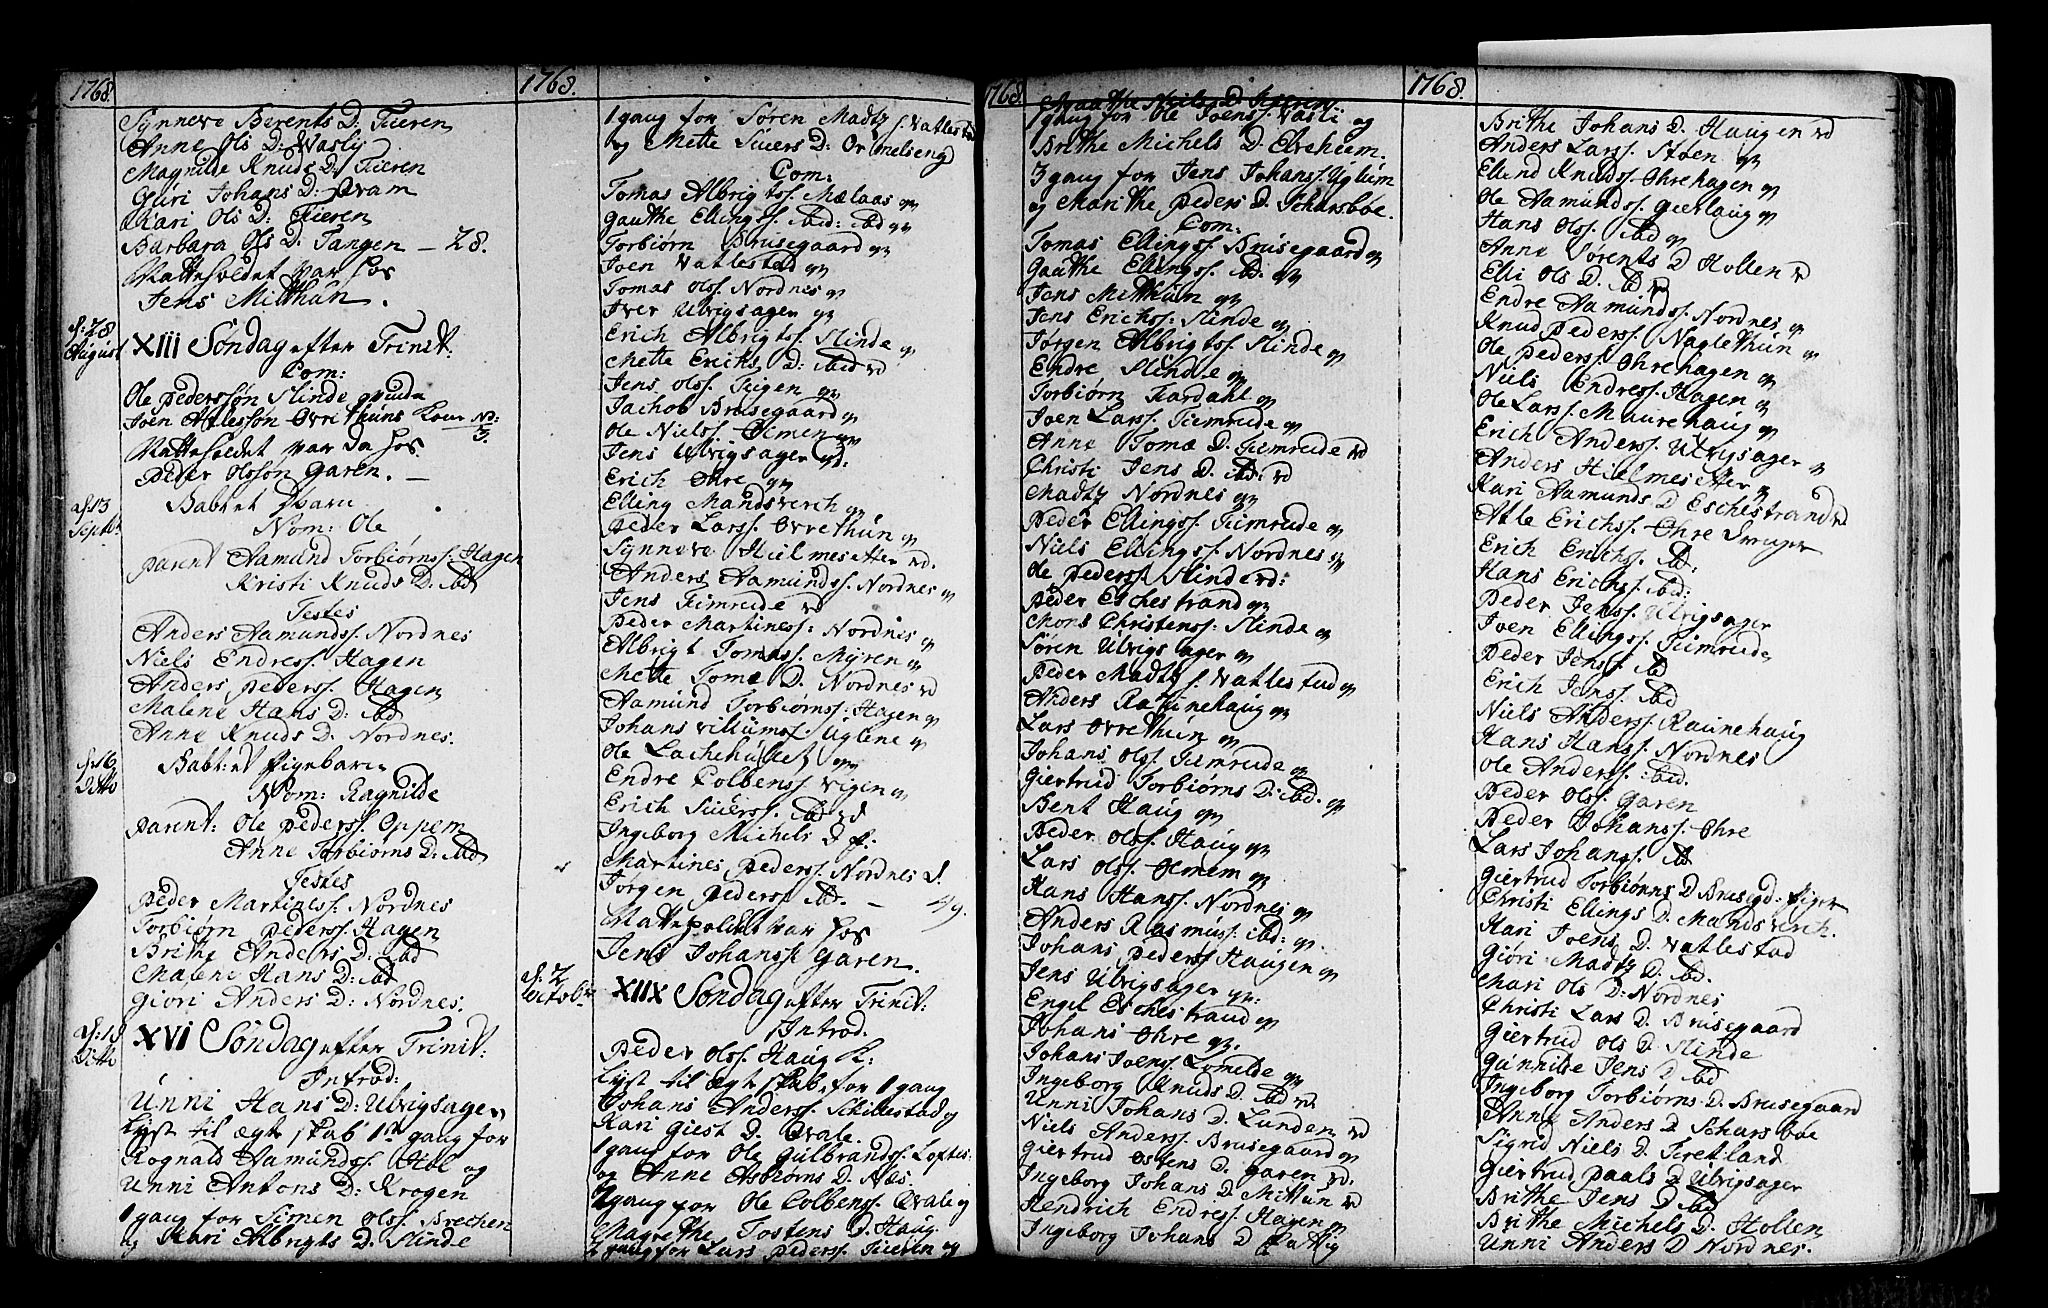 1768.
Synneve Berents D: Tieren
Anne Ols D: Wasly
Magnilde Knuds D: Tieren
Guri Johans D: Qvam
Kari Ols D: Tieren
Barbara Ols D. Tangen – 28.
var hos
Jens Mitthun.
d: 28 August
XIII Søndag efter Trinit:
Com:
Ole Pedersson Slinde
Joen Atlesson Øvrethuns
3.
var da hos
Peder Olsson Garen. –
d: 13 Septbr
Babt: et Barn
Nom: Ole
Parent Aamund Torbiørns: Hagen
Kristi Knuds D: ibd
Testes
Anders Aamunds: Nordnes
Niels Endres: Hagen
Anders Peders: Hagen
Malene Hans D: ibd
Anne Knuds D. Nordnes.
d: 16 Ditto
Babt: et Pigebarn
Nom: Ragnilde
Parent: Ole Peders: Oppem
Anne Torbiørns D: ibd
Testes
Peder Martines: Nordnes
Torbiørn Peders: Hagen
Brithe Anders D: ibd
Malene Hans D: ibd
Giøri Anders D: Nordnes.
d: 18 Ditto
XVI Søndag efter Trinit:
Introd:
Unni Hans D: Ulvigsager
Lyst til ægteskab 1ste gang for
Rognald Aamunds: Hol og
Unni Antons D: Krogen
1 gang for Simen Ols: Brechen
og Kari Albrigts D. Slinde
1768.
1 gang for Søren Madtz: Vatlestad
og Mette Siuers D: Ormelseng
Com:
Tomas Albrigts: Mælaas
Gauthe Ellings: ibid: ibd
Torbiørn Brusegaard
Joen Vatlestad
Tomas Ols: Nordnes
Iver Ulvigsager
Erich Albrigts: Slinde
Mette Erichs D: ibid
Jens Ols: Tiugen
Jachob Brusegaard
Ole Niels: Olmen
Jens Ulvigsager
Erich Ohre
Elling Mandsverch
Peder Lars: Øvrethun
Synneve Hielmesetter
Anders Aamunds: Nordnes
Jens Timrude
Peder Martines: Nordnes
Albrigt Tomas: Myren
Mette Tomæ D. Nordnes
Aamund Torbiørns: Hagen
Johans Villums: Uglene
Ole Lachehullet
Endre Colbens: Vigen
Erich Siuers: ibd
Ingeborg Michels D
Martines Peders: Nordnes
Jørgen Peders: ibd. – 49.
var hos
Jens Johans: Garen.
d: 2 Octobr
XIIX Søndag efter Trinit:
Introd.
Peder Ols: Haug K:
Lyst til ægteskab for 1 gang
Johans Anders: Schillestad og
Kari Giest D. Qvale.
1 gang for Ole Gulbrands: Loftes
og Anne Asbiørns D. Næs.
2 gang for Ole Colbens: Qvale og
Magrethe Tostens D. Haug.
2 gang for Lars Peders: Tieren og
1768.
Magrethe Niels D. Tieren.
1 gang for Ole Joens: Vasli og
Brithe Michels D. Elveheim.
3 gang for Jens Johans: Uglum
og Marithe Peders D. Scharsbøe.
Com:
Tomas Ellings: Brusegaard
Gauthe Ellings: ibd.
Jens Mitthun
Jens Erichs: Slinde
Jørgen Albrigts: Slinde
Endre Slinde
Torbiørn Fardahl
Joen Lars: Timrude
Anne Tomæ D. Timrude
Christi Jens D. ibd:
Madtz Nordnes
Peder Ellings: Timrude
Niels Ellings: Nordnes
Ole Peders: Slinde
Peder Eschestrand
Mons Christens: Slinde
Søren Ulvigsager
Peder Madtz: Vatlestad
Anders Raunehaug
Lars Øvrethun
Johans Ols: Timrude
Giertrud Torbiørns D: ibd.
Bent Haug
Peder Ols: Haug
Lars Ols: Olmem
Hans Hans: Nordnes
Anders Rasmus: ibd:
Johans Peders: Haugen
Jens Ulvigsager
Engel Eschestrand
Johans Ohre
Johans Joens: Lomelde
Ingeborg Knuds D. ibd
Unni Johans D. Lunden
Niels Anders: Brusegaard
Giertrud Ostens D. Garen
Ingeborg Johans D. Mitthun
Hendrich Endres: Hagen
Ingeborg Johans D
1768.
Brithe Johans D. Haugen
Anders Lars: Støen
Ellend Knuds: Ohrehagen
Ole Aamunds: Gierlaug
Hans Ols: ibd
Anne Sørents D Hollen
Elli Ols D. ibd
Endre Aamunds: Nordnes
Knud Peders: Naglethun
Ole Peders: Ohrehagen
Niels Endres: Hagen
Ole Lars: Maurehaug
Erich Anders: Ulvigsager
Anders Hielmesetter
Kari Aamunds D Eschestrand
Atle Erichs: Ohre Drenger
Erich Erichs: ibd:
Hans Erichs: ibd:
Peder Jens: Ulvigsager
Joen Ellings: Timrude
Peder Jens: ibd
Erich Jens: ibd
Niels Anders: Raunehaug
Hans Hans: Nordnes
Ole Anders: ibd.
Peder Ols: Garen
Peder Johans: Ohre
Lars Johans: ibd
Giertrud Torbiørns D Brusegd. Piger
Christi Ellings D. Mandsverch.
Kari Joens D. Vatlestad
Giøri Madtz D. ibd.
Mari Ols D. Nordnes
Christi Lars D. Brusegaard
Giertrud Ols D. Slinde
Gunnilde Jens D ibd
Ingeborg Torbiørns D. Brusegaard
Anne Anders D Scharsbøe
Sigrid Niels D. Fretland
Giertrud Paals D Ulvigsager
Brithe Jens D ibd
Brithe Michels D. Hollen
Unni Anders D Nordnes.